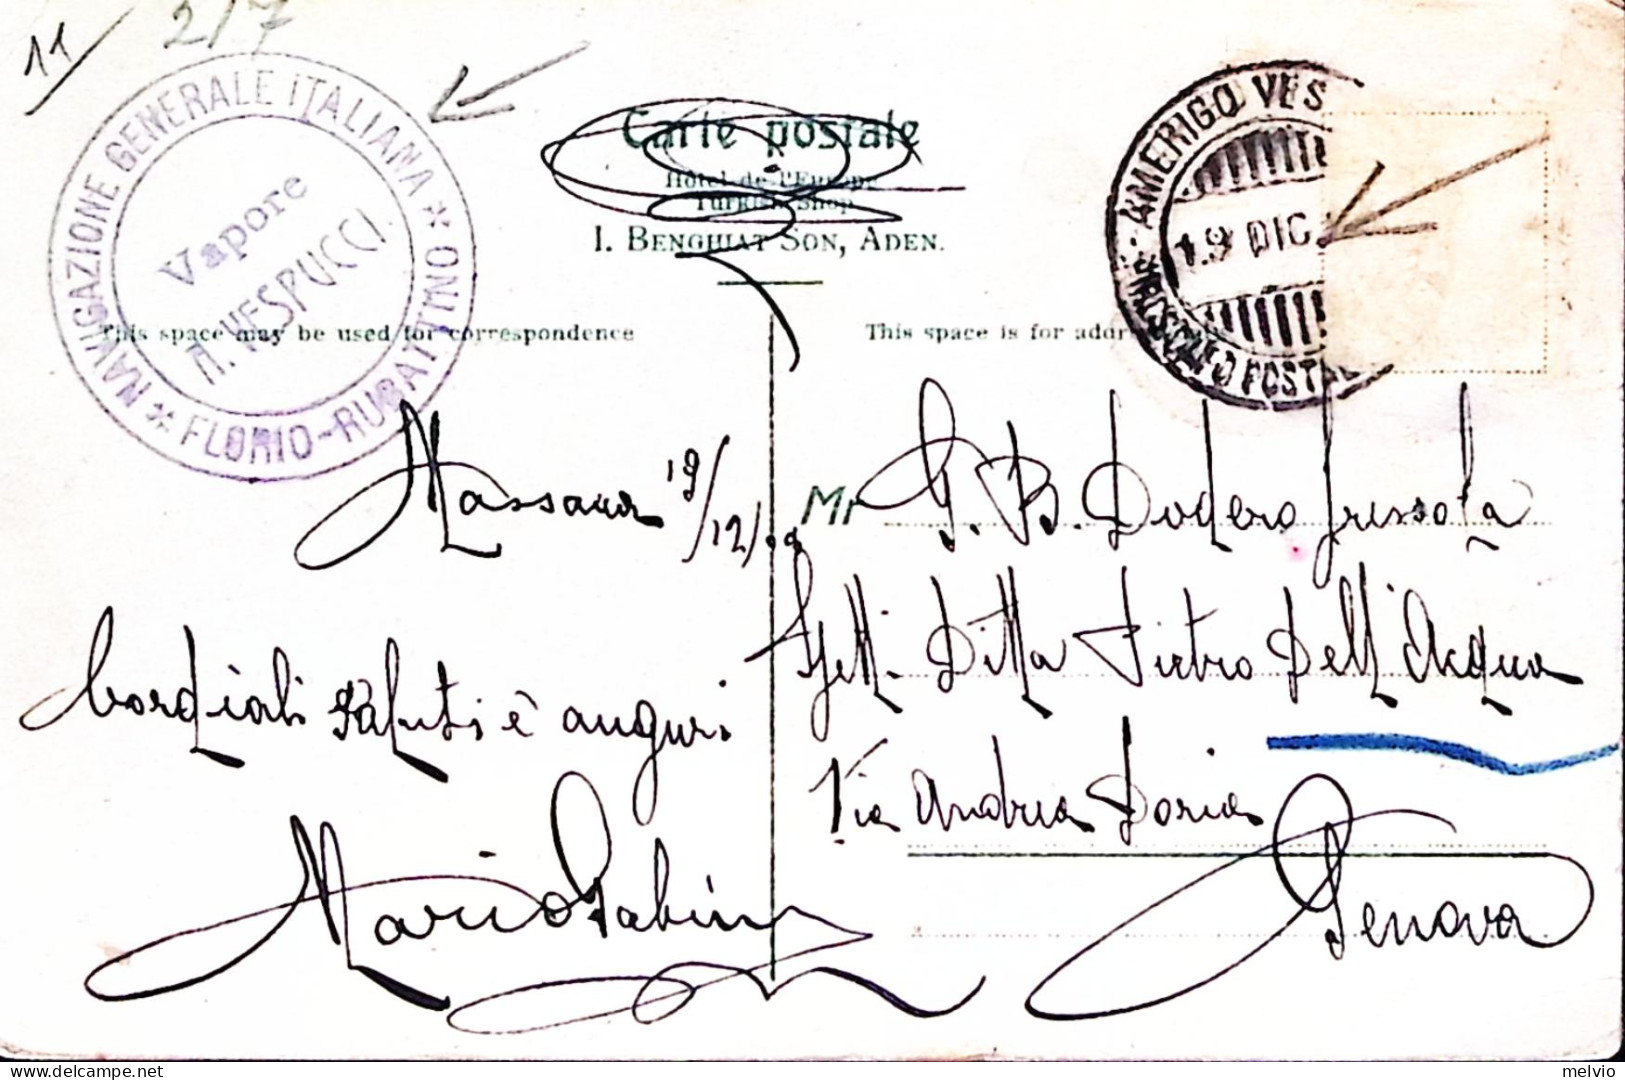 11/
2/7
NAVIGAZIONE GENERALE ITALIANA * FLORIO-RUBATTINO *
Vapore
A. VESPUCCI.
Carte postale
Hôtel de l'Europe
Turkish Shop
I. BENGHIAT SON, ADEN.
AMERIGO VES
PIROSCAFO POSTAL
19 DIC.
This space may be used for correspondence
This space is for address
Massaua 19/12/
Cordiali saluti è auguri
Mario
Mr G. B. Dodero
Ditta Pietro Dell'Acqua
Via Andrea Doria
Genova
melvio